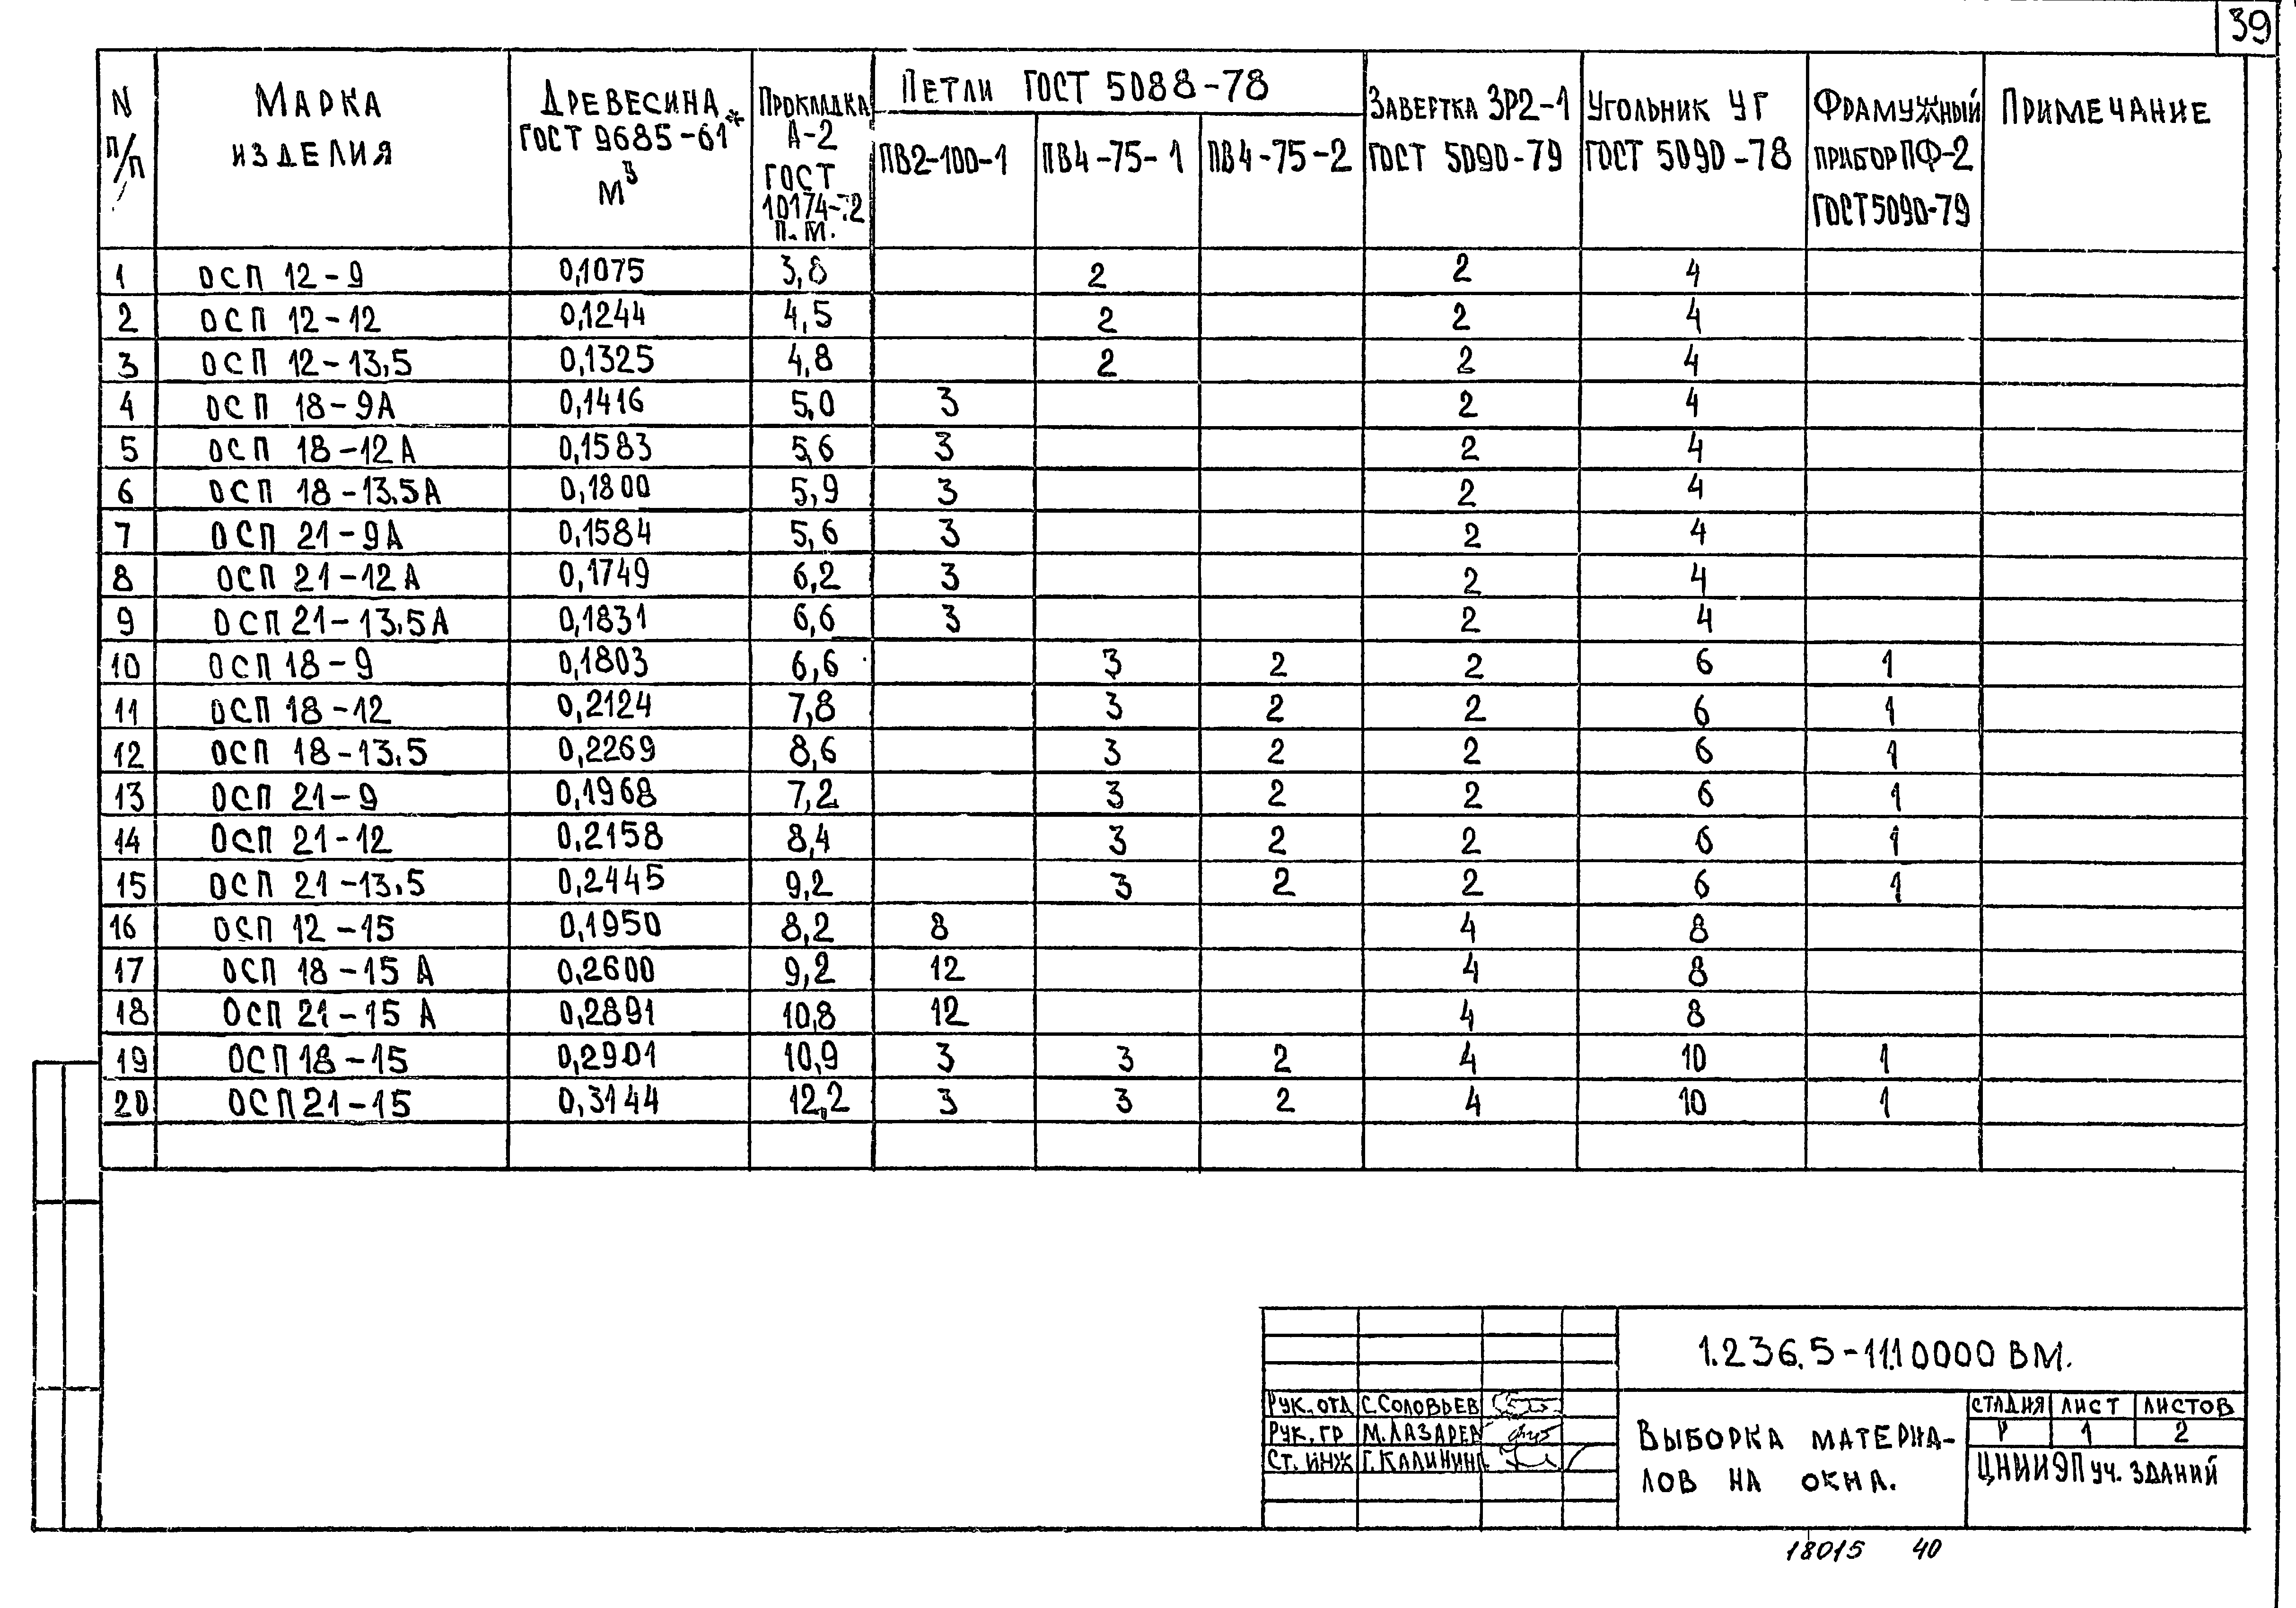 39
N п/п | Марка изделия | Древесина ГОСТ 9685-61* м³ | Прокладка А-2 ГОСТ 10174-72 п.м. | Петли ГОСТ 5088-78 | Завертка ЗР2-1 ГОСТ 5090-79 | Угольник УГ ГОСТ 5090-78 | Фрамужный прибор ПФ-2 ГОСТ 5090-79 | Примечание
ПВ2-100-1 | ПВ4-75-1 | ПВ4-75-2
1 | ОСП 12-9 | 0,1075 | 3,8 | | 2 | | 2 | 4
2 | ОСП 12-12 | 0,1244 | 4,5 | | 2 | | 2 | 4
3 | ОСП 12-13.5 | 0,1325 | 4,8 | | 2 | | 2 | 4
4 | ОСП 18-9А | 0,1416 | 5,0 | 3 | | | 2 | 4
5 | ОСП 18-12А | 0,1583 | 5,6 | 3 | | | 2 | 4
6 | ОСП 18-13.5А | 0,1800 | 5,9 | 3 | | | 2 | 4
7 | ОСП 21-9А | 0,1584 | 5,6 | 3 | | | 2 | 4
8 | ОСП 21-12А | 0,1749 | 6,2 | 3 | | | 2 | 4
9 | ОСП 21-13.5А | 0,1831 | 6,6 | 3 | | | 2 | 4
10 | ОСП 18-9 | 0,1803 | 6,6 | | 3 | 2 | 2 | 6 | 1
11 | ОСП 18-12 | 0,2124 | 7,8 | | 3 | 2 | 2 | 6 | 1
12 | ОСП 18-13.5 | 0,2269 | 8,6 | | 3 | 2 | 2 | 6 | 1
13 | ОСП 21-9 | 0,1968 | 7,2 | | 3 | 2 | 2 | 6 | 1
14 | ОСП 21-12 | 0,2158 | 8,4 | | 3 | 2 | 2 | 6 | 1
15 | ОСП 21-13.5 | 0,2445 | 9,2 | | 3 | 2 | 2 | 6 | 1
16 | ОСП 12-15 | 0,1950 | 8,2 | 8 | | | 4 | 8
17 | ОСП 18-15 А | 0,2600 | 9,2 | 12 | | | 4 | 8
18 | ОСП 21-15 А | 0,2891 | 10,8 | 12 | | | 4 | 8
19 | ОСП 18-15 | 0,2901 | 10,9 | 3 | 3 | 2 | 4 | 10 | 1
20 | ОСП 21-15 | 0,3144 | 12,2 | 3 | 3 | 2 | 4 | 10 | 1
1.236.5-11.1 0000 ВМ.
Рук. отд С. Соловьев
Рук. гр М. Лазарев
Ст. инж Г. Калинина
Выборка материа-
лов на окна.
стадия лист листов
Р 1 2
ЦНИИЭП уч. зданий
18015 40